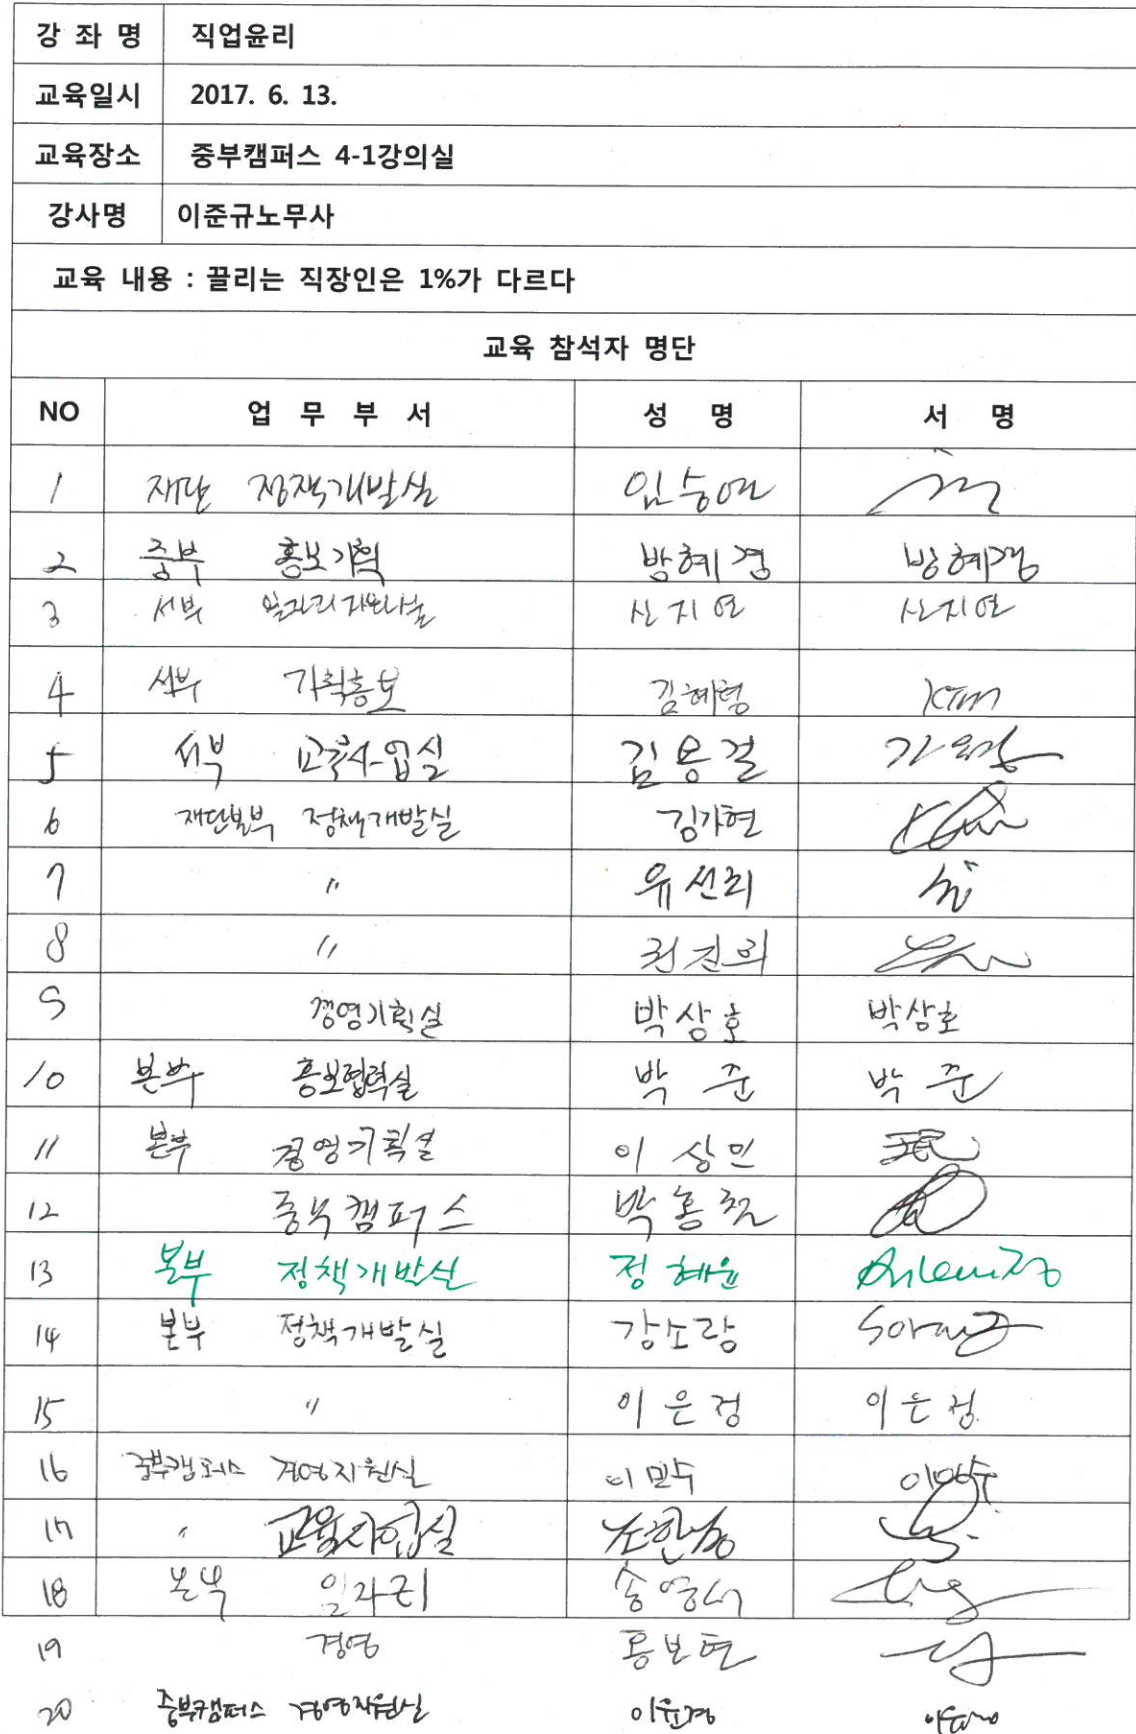 강 좌 명 직업윤리
교육일시 2017. 6. 13.
교육장소 중부캠퍼스 4-1강의실
강사명 이준규노무사
교육 내용 : 끌리는 직장인은 1%가 다르다
교육 참석자 명단
NO 업 무 부 서 성 명 서 명
1 재단 정책개발실 임승연
2 중부 홍보기획 방혜경 방혜경
3 서부 일자리자원나눔 신지연 신지연
4 서부 기획홍보 김혜령 KIM
5 서부 교육사업실 김용걸
6 재단본부 정책개발실 김가현
7 〃 유선희
8 〃 권진희
9 경영기획실 박상호 박상호
10 본부 홍보협력실 박 준 박 준
11 본부 경영기획실 이 상민
12 중부캠퍼스 박홍철
13 본부 정책개발실 정 혜윤
14 본부 정책개발실 강소랑
15 〃 이은정 이은정
16 중부캠퍼스 경영지원실 이민수 이민수
17 〃 교육사업실
18 본부 일자리 송영서
19 경영 홍보현
20 중부캠퍼스 경영지원실 이윤경